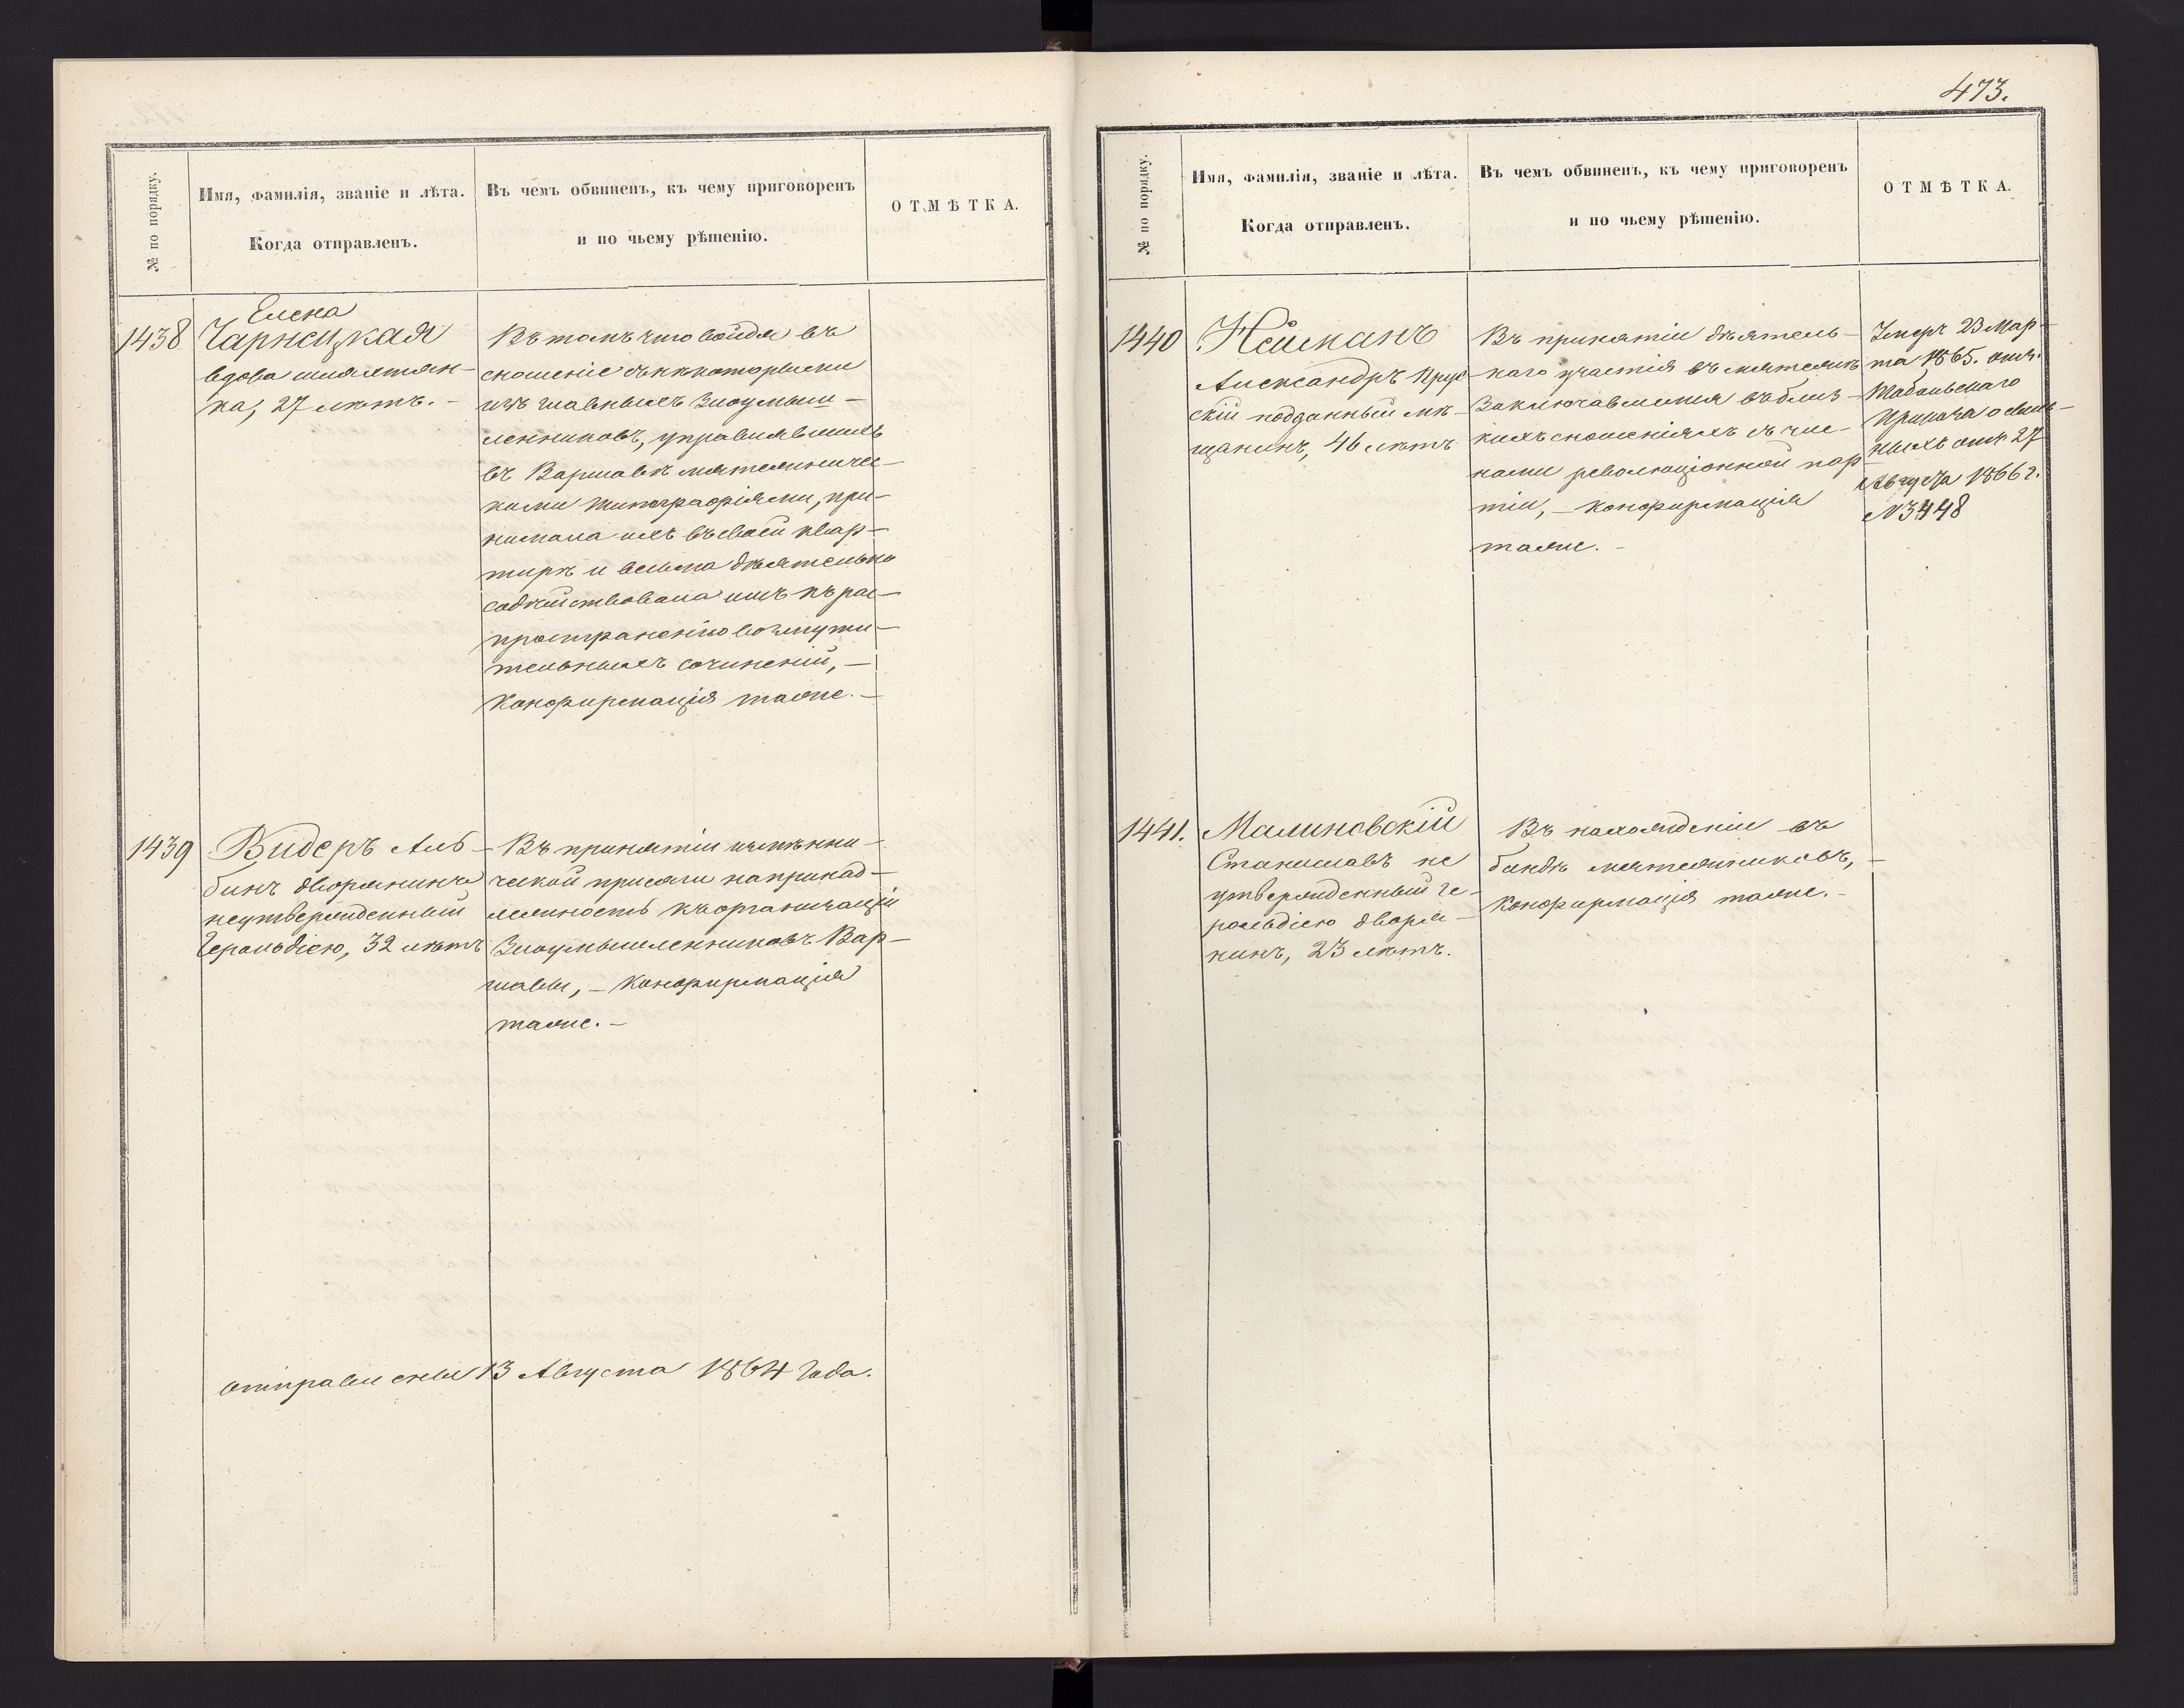 № по порядку.
Имя, фамилія, званіе и лѣта.
Когда отправленъ.
Въ чемъ обвиненъ, къ чему приговоренъ
и по чьему рѣшенію.
ОТМѢТКА.
1438
Елена
Чарнецкая
вдова шляхтян-
ка, 27 лѣтъ. -
Въ томъ что войдя въ
сношеніе съ нѣкоторыми
изъ главныхъ Злоумыш-
ленниковъ, управлявшихъ
въ Варшавѣ мятежничес-
кими типографіями, при-
нимала ихъ въ своей квар-
тирѣ и весьма дѣятельно
содѣйствовала имъ къ рас-
пространенію возмути-
тельныхъ сочиненій, -
Конфирмація таже. -
1439
Видеръ Аль-
бинъ дворянинъ
неутвержденный
Герольдіею, 32 лѣтъ
Въ принятіи измѣнни-
ческой присяги на принад-
лежность къ организаціи
Злоумышленниковъ Вар-
шавы, - Конфирмація
таже. -
отправлены 13 Августа 1864 Года.
473.
№ по порядку.
Имя, фамилія, званіе и лѣта.
Когда отправленъ.
Въ чемъ обвиненъ, къ чему приговоренъ
и по чьему рѣшенію.
ОТМѢТКА.
1440
Нейманъ
Александръ Прус-
скій подданный мѣ-
щанинъ, 46 лѣтъ
Въ принятіи дѣятель-
наго участія въ мятежѣ
Заключавшемся въ близ-
кихъ сношеніяхъ съ чле-
нами революціонной пар-
тіи, - Конфирмація
таже. -
Умеръ 23 Мар-
та 1865. отн.
Тобольскаго
Приказа о ссыль-
ныхъ отъ 27
Августа 1866 г.
№ 3448
1441.
Малиновскій
Станиславъ не
утвержденный Ге-
рольдіею дворя-
нинъ, 23 лѣтъ.
Въ нахожденіи въ
бандѣ мятежниковъ, -
Конфирмація таже. -